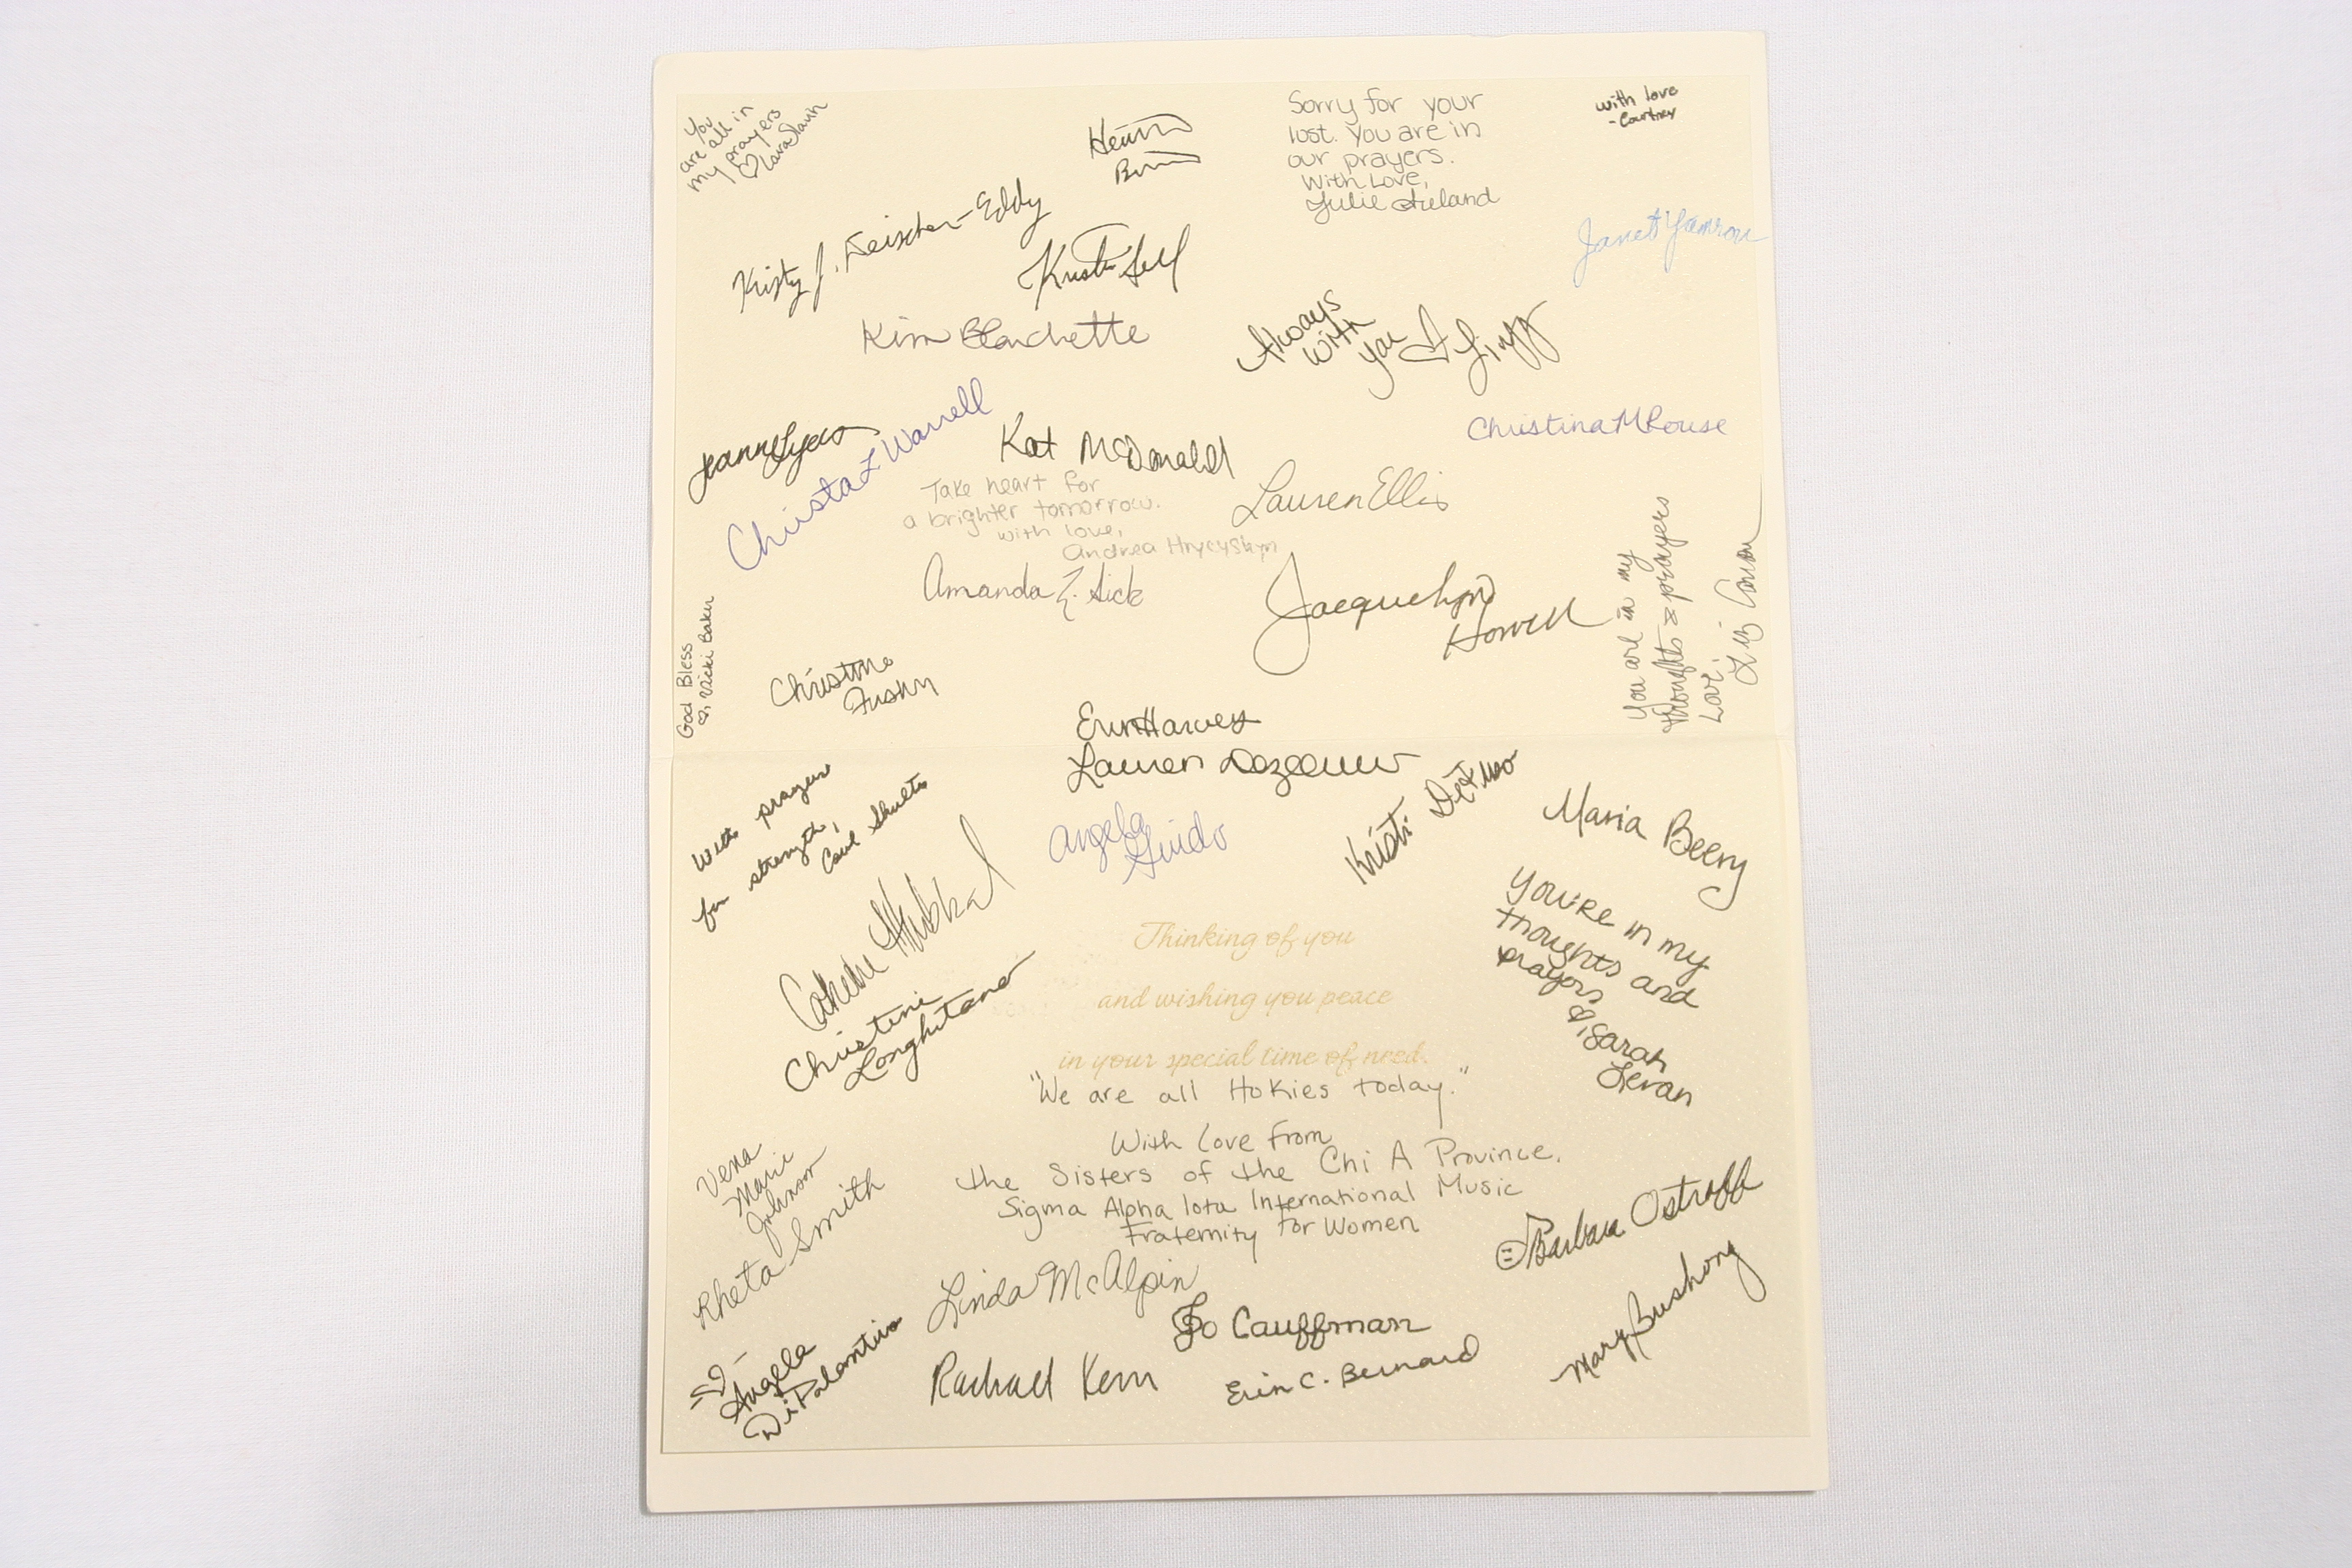 You
are all in
my prayers
♡ Lara
Kristy J. Deischer-Eddy
Sorry for your
lost. You are in
our prayers.
With Love,
Julie Ireland
with love
- Courtney
Janet
Kim Blanchette
Always
with
you
Christa L Warrell
Kat McDonald
Christina M Rouse
Take heart for
a brighter tomorrow.
with love,
Andrea Hrycyshyn
Lauren Ellis
Amanda E. Sick
Jacquelyn
Howell
You are in my
thoughts & prayers
Love,
Liz
God Bless
♡, Vicki Baker
Christine
Erin Harvey
Lauren Dezeeuw
With prayers
for strength,
Carol Shults
Angela
Guido
Kristi
Maria Beery
You're in my
thoughts and
prayers
Sarah
Levan
Christine
Longhitano
Thinking of you
and wishing you peace
in your special time of need.
"We are all Hokies today."
With love from
the Sisters of the Chi A Province,
Sigma Alpha Iota International Music
Fraternity for Women
Vena
Marie
Johnson
Rheta Smith
Barbara Ostroff
Mary Bushong
Linda McAlpin
Jo Cauffman
Angela
DiPalantino
Rachael Kern
Erin C. Bernard